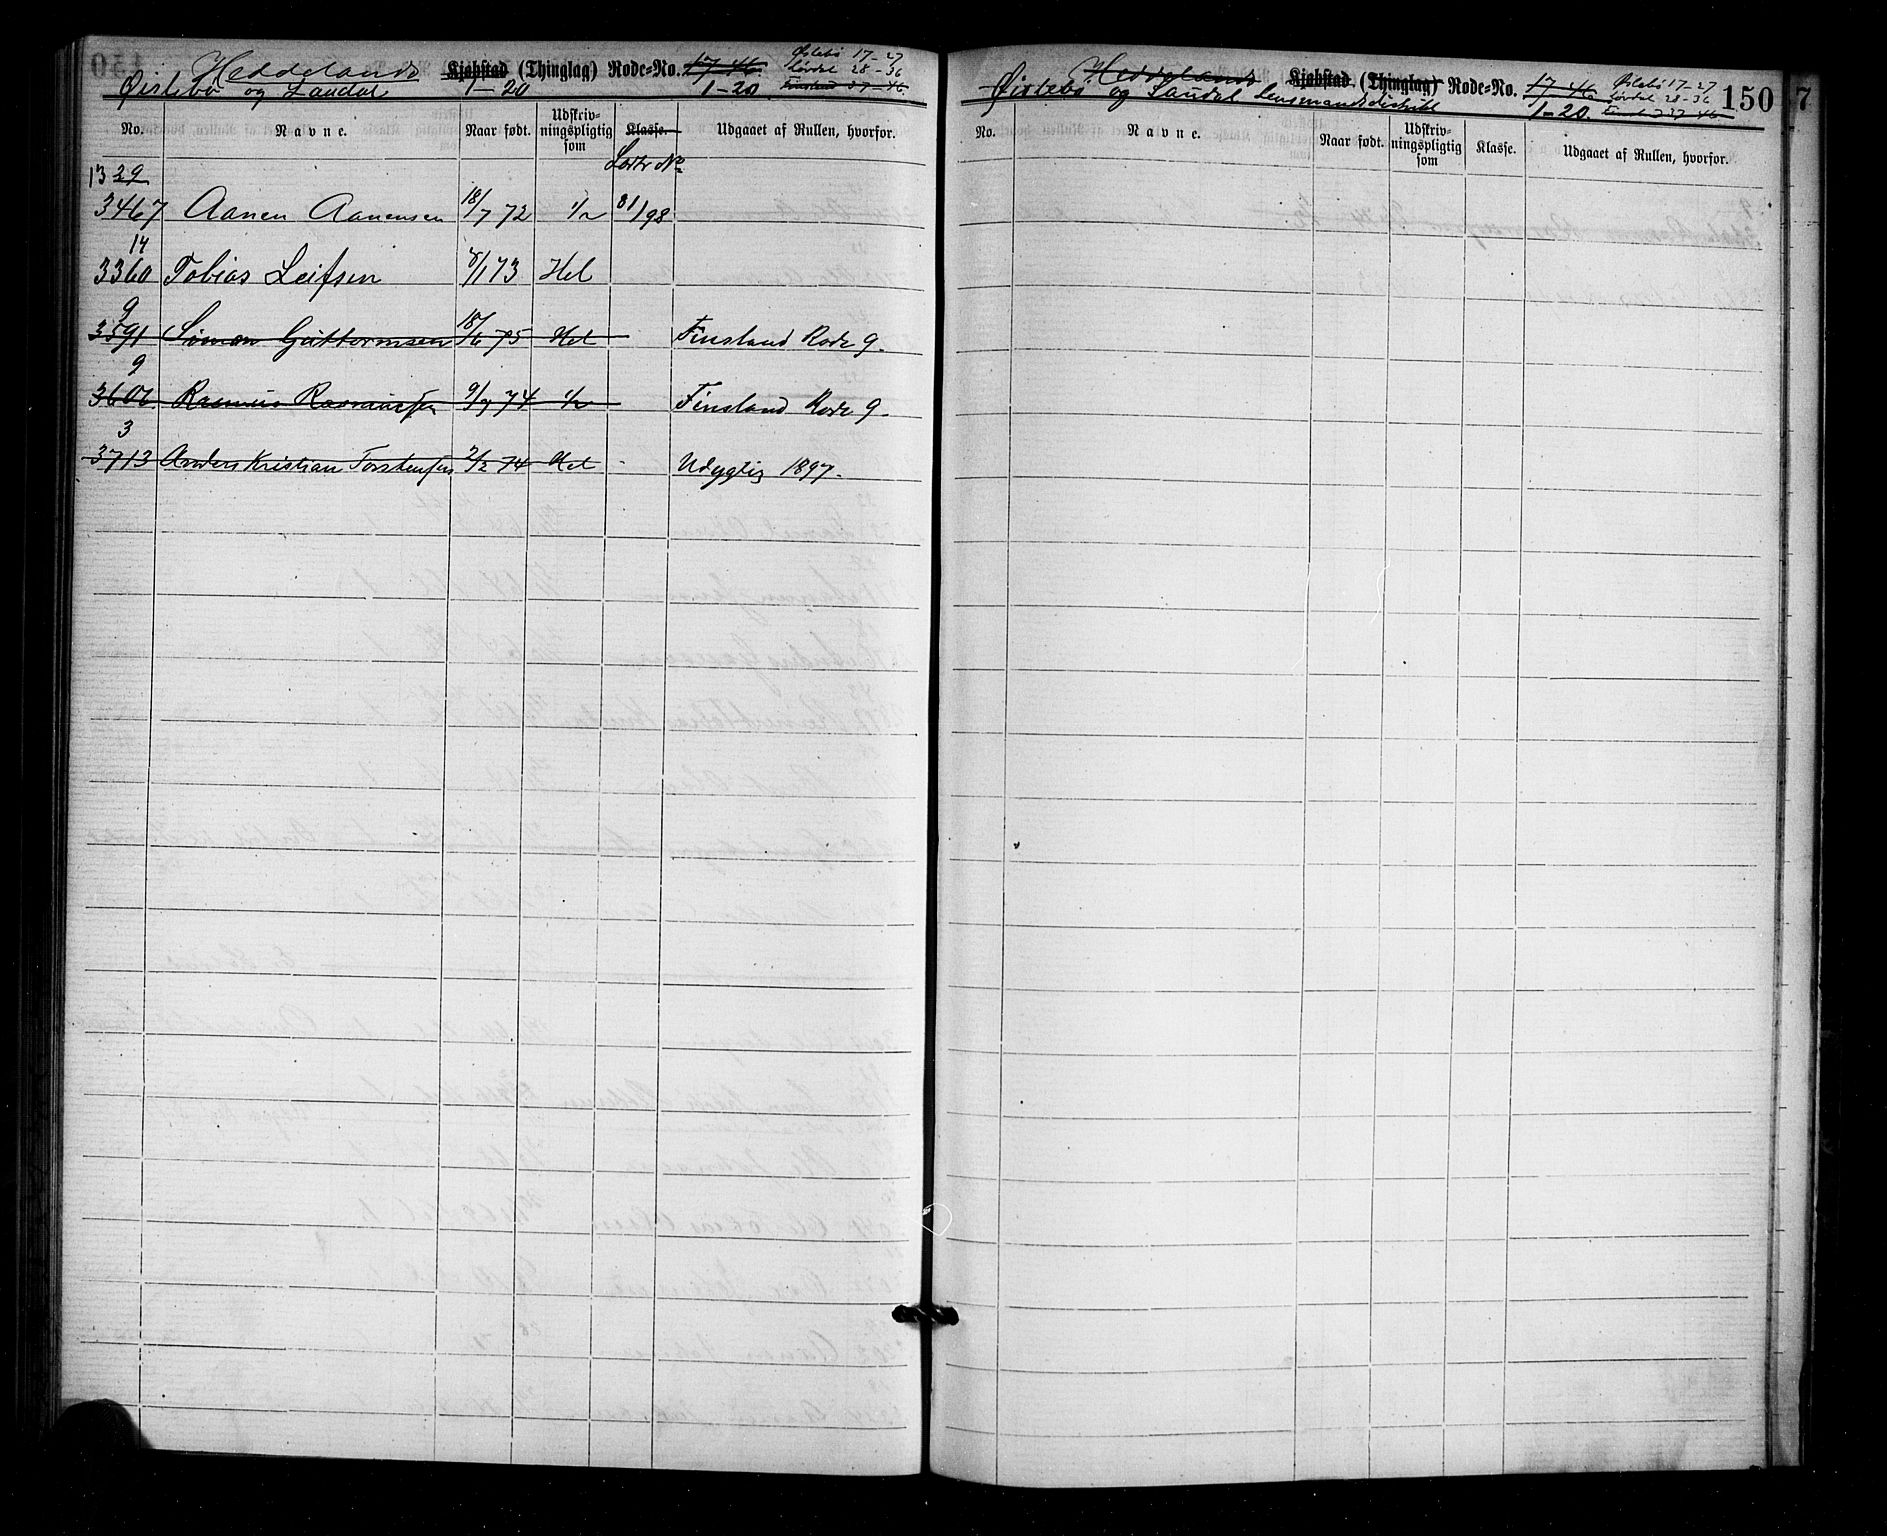 Heddelands Kjøbstad (Thinglag) Rode-No. 17-46. Øislebø 17-27
Øislebø og Laudal 1-20 1-20 Løvdal 28-36
Finsland 37-46
No. Navne. Naar født. Udskriv-ningspligtig som Klasse. Udgaaet af Rullen, hvorfor.
13 29
3467 Aanen Aanensen 18/7 72 1/2 81/98
14
3360 Tobias Leifsen 8/1 73 Hel
9
3591 Simon Guttormsen 18/6 75 Hel Finsland Rode 9.
9
3606. Rasmus Rasmussen 9/7 74 1/2 Finsland Rode 9.
3
3713 Anders Kristian Torstensen 2/2 74 Hel Udygtig 1897.
Heddelands Kjøbstad (Thinglag) Rode-No. 17-46 Øislebø 17-27
Øislebø og Laudal Lensmandsdistrikt 1-20. Løvdal 28-36
Finsland 37-46
150
7
No. Navne. Naar født. Udskriv-ningspligtig som Klasse. Udgaaet af Rullen, hvorfor.